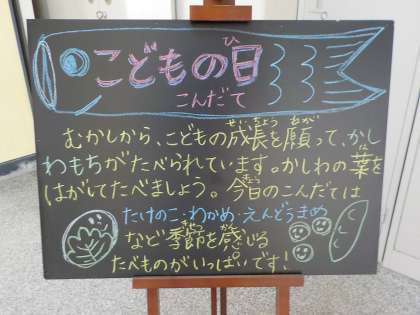 こどもの日
こんだて
むかしから、こどもの成長を願って、かし
わもちがたべられています。かしわの葉を
はがしてたべましょう。今日のこんだては
たけのこ・わかめ・えんどうまめ
など季節を感じる
たべものがいっぱいです!